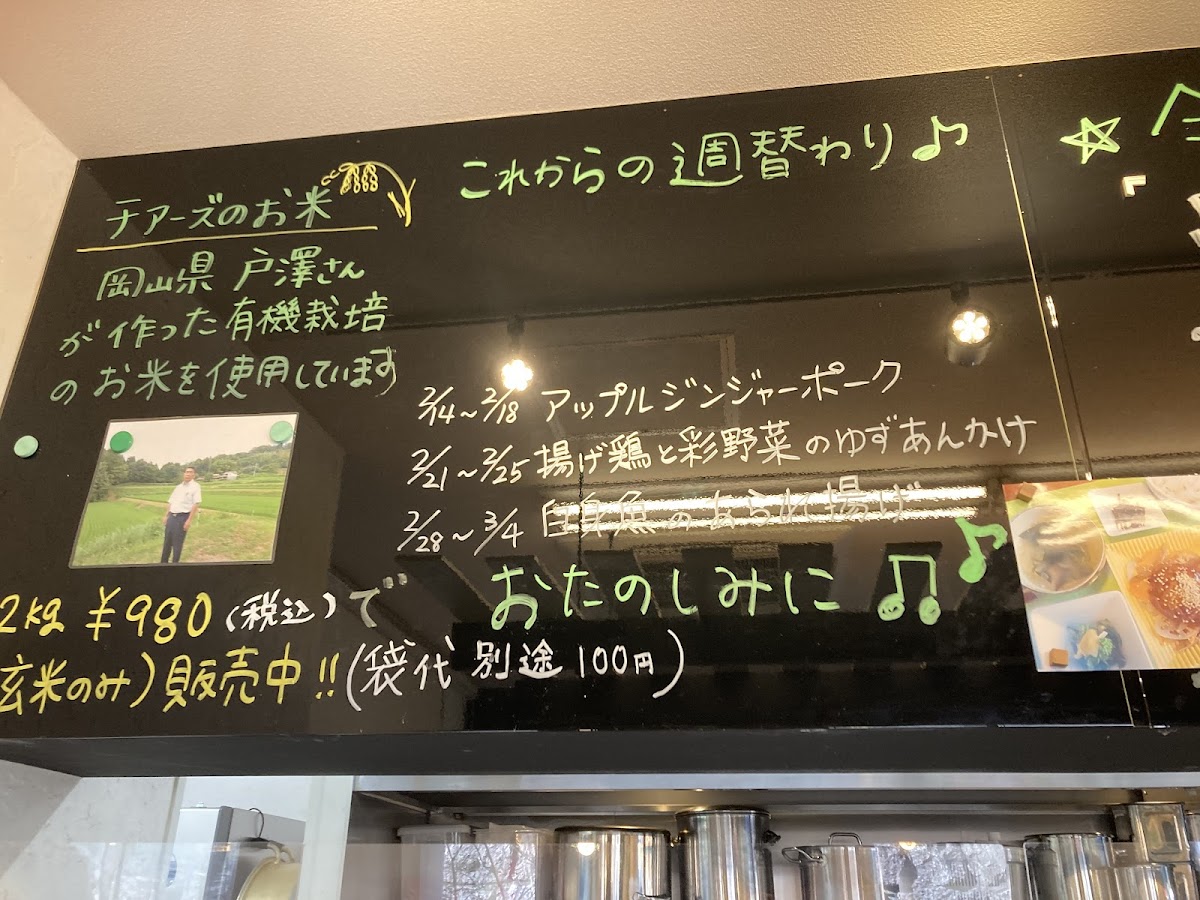 チアーズのお米
岡山県 戸澤さん
が作った有機栽培
のお米を使用しています
2kg ¥980(税込)で
玄米のみ)販売中!!(袋代 別途100円)
これからの週替わり♪
2/14~2/18 アップルジンジャーポーク
2/21~2/25 揚げ鶏と彩野菜のゆずあんかけ
2/28~3/4 白身魚のあられ揚げ
おたのしみに♫♪
☆